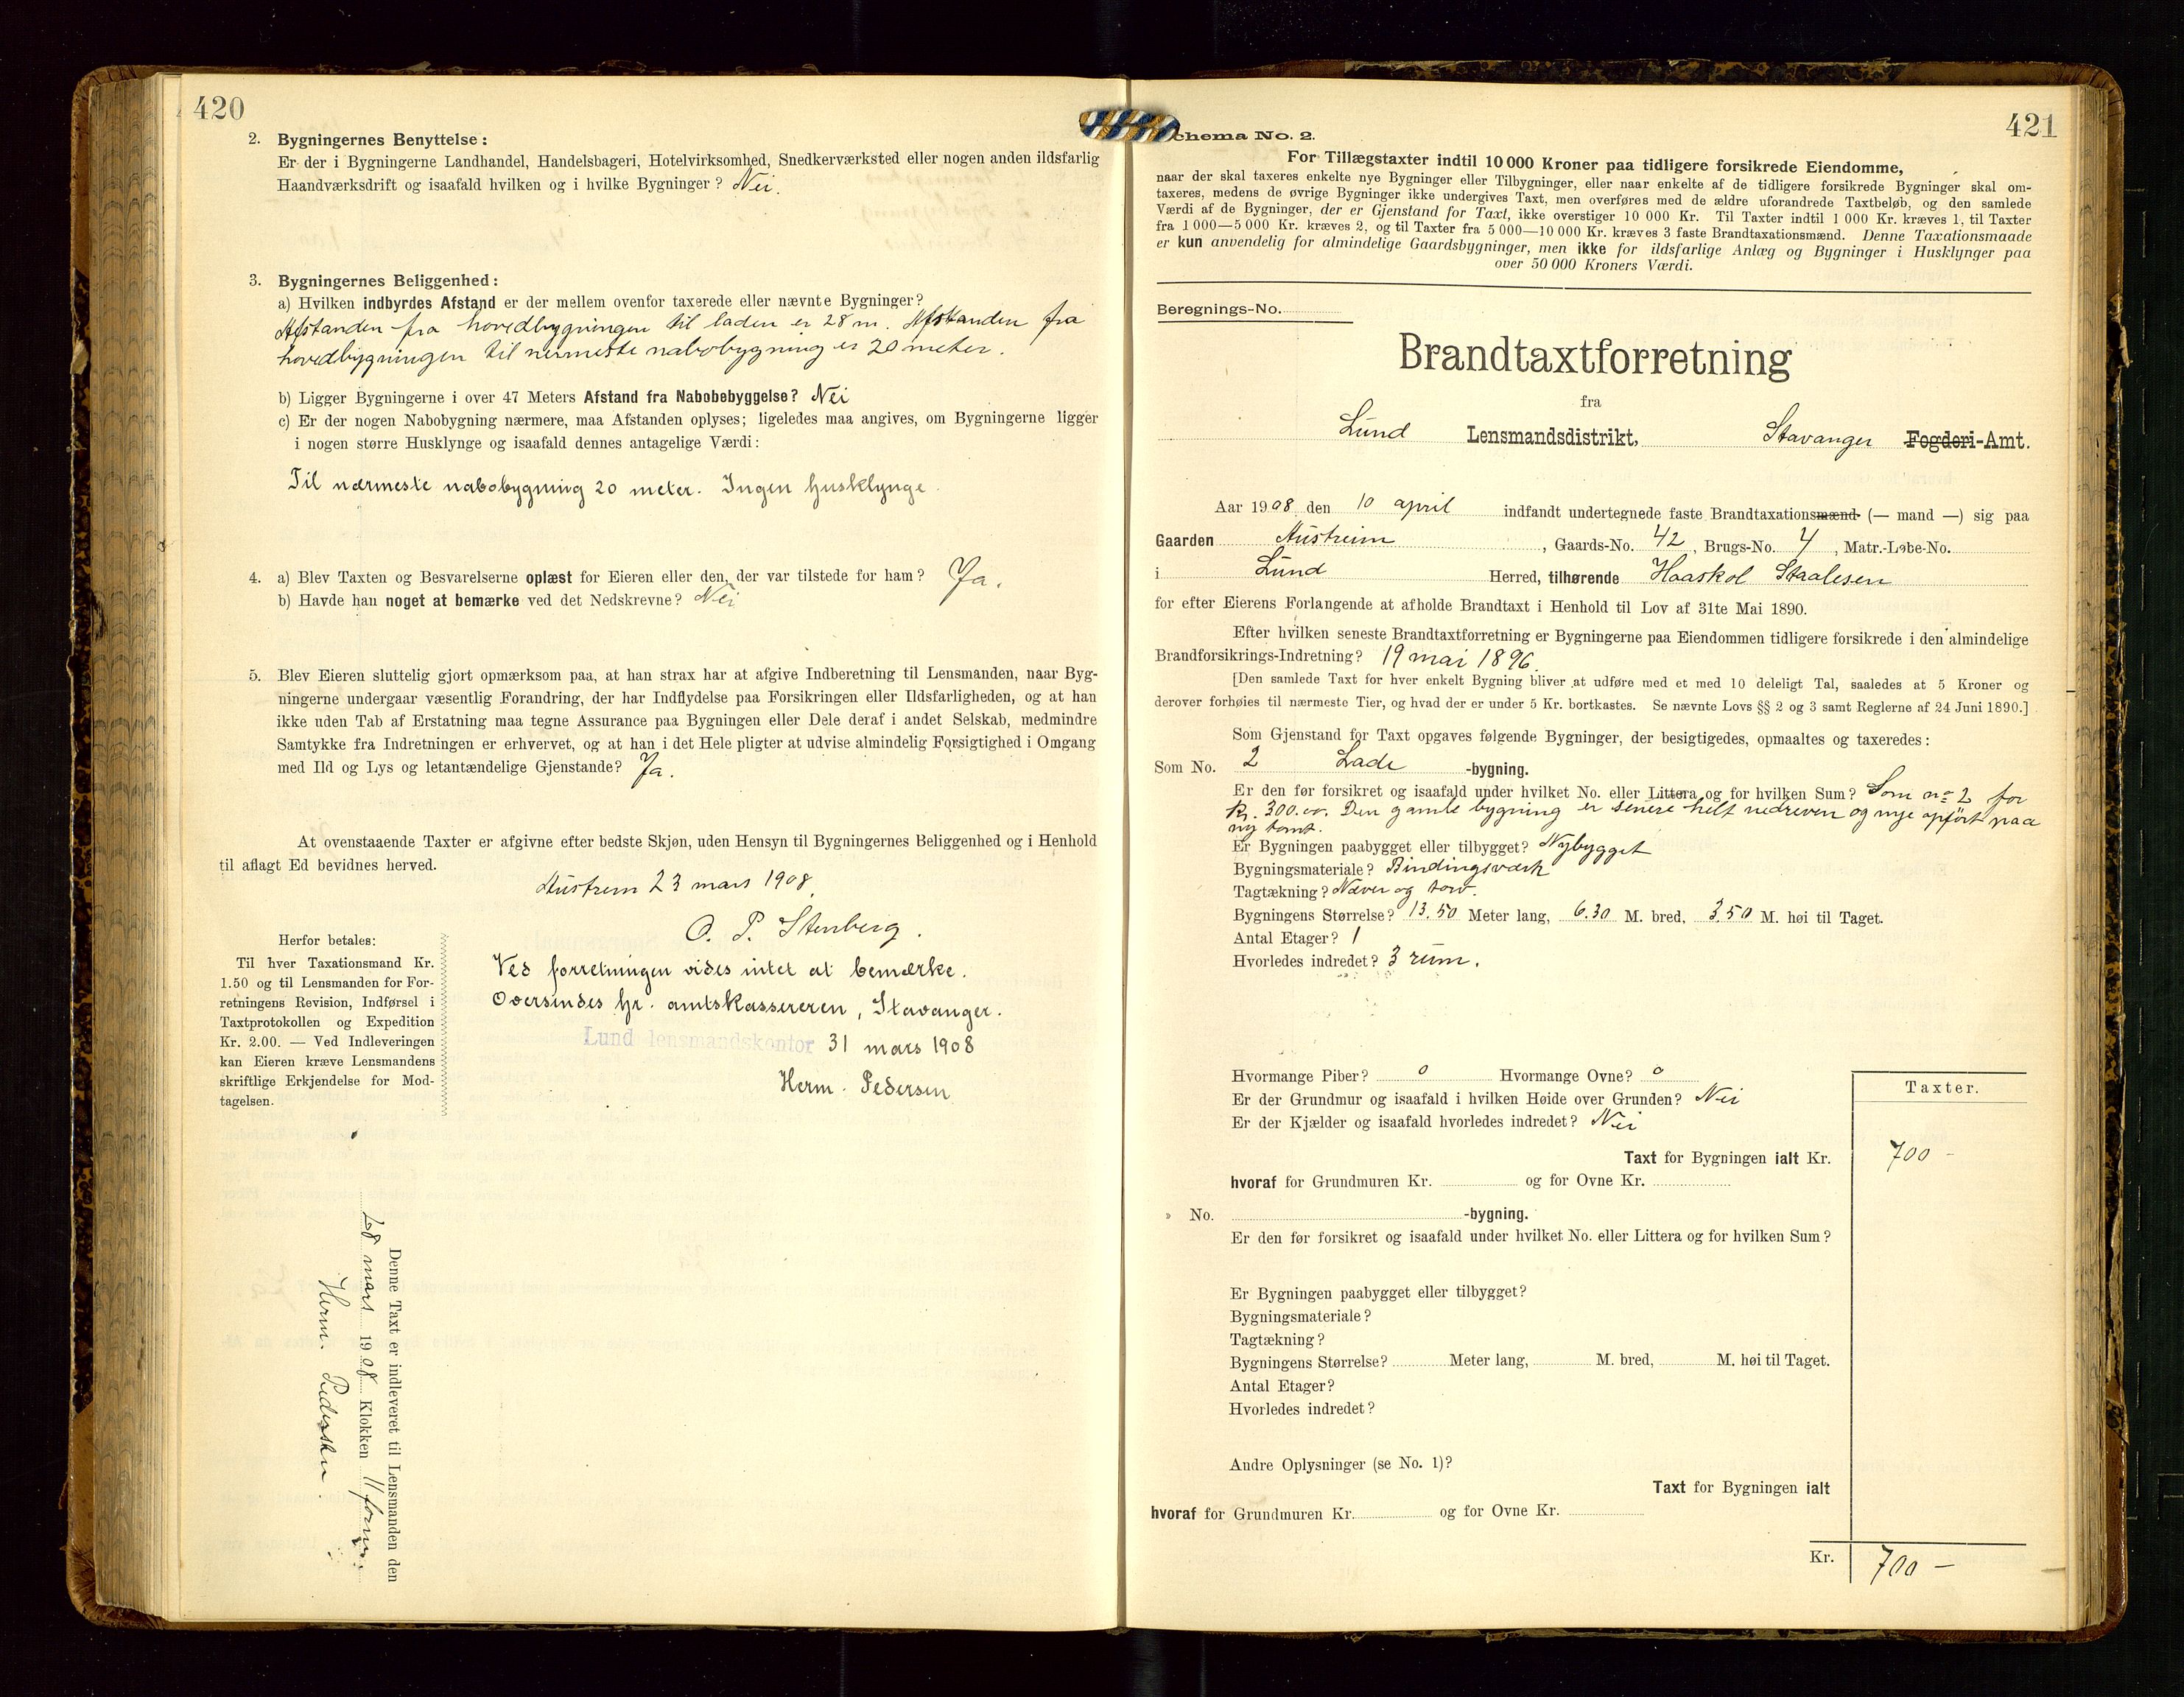 420
2. Bygningernes Benyttelse:
Er der i Bygningerne Landhandel, Handelsbageri, Hotelvirksomhed, Snedkerværksted eller nogen anden ildsfarlig
Haandværksdrift og isaafald hvilken og i hvilke Bygninger? Nei.
3. Bygningernes Beliggenhed:
a) Hvilken indbyrdes Afstand er der mellem ovenfor taxerede eller nævnte Bygninger?
Afstanden fra hovedbygningen til laden er 28 m. Afstanden fra
hovedbygningen til nærmeste nabobygning er 20 meter.
b) Ligger Bygningerne i over 47 Meters Afstand fra Nabobebyggelse? Nei
c) Er der nogen Nabobygning nærmere, maa Afstanden oplyses; ligeledes maa angives, om Bygningerne ligger
i nogen større Husklynge og isaafald dennes antagelige Værdi:
Til nærmeste nabobygning 20 meter. Ingen husklynge.
4. a) Blev Taxten og Besvarelserne oplæst for Eieren eller den, der var tilstede for ham? Ja.
b) Havde han noget at bemærke ved det Nedskrevne? Nei
5. Blev Eieren sluttelig gjort opmærksom paa, at han strax har at afgive Indberetning til Lensmanden, naar Byg-
ningerne undergaar væsentlig Forandring, der har Indflydelse paa Forsikringen eller Ildsfarligheden, og at han
ikke uden Tab af Erstatning maa tegne Assurance paa Bygningen eller Dele deraf i andet Selskab, medmindre
Samtykke fra Indretningen er erhvervet, og at han i det Hele pligter at udvise almindelig Forsigtighed i Omgang
med Ild og Lys og letantændelige Gjenstande? Ja.
At ovenstaaende Taxter er afgivne efter bedste Skjøn, uden Hensyn til Bygningernes Beliggenhed og i Henhold
til aflagt Ed bevidnes herved.
Austrem 23 mars 1908.
O. P. Stenberg.
Herfor betales:
Til hver Taxationsmand Kr.
1.50 og til Lensmanden for For-
retningens Revision, Indførsel i
Taxtprotokollen og Expedition
Kr. 2.00. — Ved Indleveringen
kan Eieren kræve Lensmandens
skriftlige Erkjendelse for Mod-
tagelsen.
Ved forretningen vides intet at bemærke.
Oversendes hr. amtskassereren, Stavanger.
Lund lensmandskontor 31 mars 1908
Herm. Pedersen
Denne Taxt er indleveret til Lensmanden den
28 mars 1908 Klokken 11 form.
Herm. Pedersen
421
Schema No. 2.
For Tillægstaxter indtil 10 000 Kroner paa tidligere forsikrede Eiendomme,
naar der skal taxeres enkelte nye Bygninger eller Tilbygninger, eller naar enkelte af de tidligere forsikrede Bygninger skal om-
taxeres, medens de øvrige Bygninger ikke undergives Taxt, men overføres med de ældre uforandrede Taxtbeløb, og den samlede
Værdi af de Bygninger, der er Gjenstand for Taxt, ikke overstiger 10 000 Kr. Til Taxter indtil 1 000 Kr. kræves 1, til Taxter
fra 1 000—5 000 Kr. kræves 2, og til Taxter fra 5 000—10 000 Kr. kræves 3 faste Brandtaxationsmænd. Denne Taxationsmaade
er kun anvendelig for almindelige Gaardsbygninger, men ikke for ildsfarlige Anlæg og Bygninger i Husklynger paa
over 50 000 Kroners Værdi.
Beregnings-No.
Brandtaxtforretning
fra
Lund Lensmandsdistrikt, Stavanger Fogderi-Amt.
Aar 1908 den 10 april indfandt undertegnede faste Brandtaxationsmænd (— mand —) sig paa
Gaarden Austreim, Gaards-No. 42, Brugs-No. 4, Matr.-Løbe-No.
i Lund Herred, tilhørende Haaskol Staalesen
for efter Eierens Forlangende at afholde Brandtaxt i Henhold til Lov af 31te Mai 1890.
Efter hvilken seneste Brandtaxtforretning er Bygningerne paa Eiendommen tidligere forsikrede i den almindelige
Brandforsikrings-Indretning? 19 mai 1896.
[Den samlede Taxt for hver enkelt Bygning bliver at udføre med et med 10 deleligt Tal, saaledes at 5 Kroner og
derover forhøies til nærmeste Tier, og hvad der er under 5 Kr. bortkastes. Se nævnte Lovs §§ 2 og 3 samt Reglerne af 24 Juni 1890.]
Som Gjenstand for Taxt opgaves følgende Bygninger, der besigtigedes, opmaaltes og taxeredes:
Som No. 2 Lade -bygning.
Er den før forsikret og isaafald under hvilket No. eller Littera og for hvilken Sum? Som no 2 for
kr. 300.00. Den gamle bygning er senere helt nedreven og nye opført paa
ny tomt.
Er Bygningen paabygget eller tilbygget? Nybygget
Bygningsmateriale? Bindingsværk
Tagtækning? Næver og torv.
Bygningens Størrelse? 13.50 Meter lang, 6.30 M. bred, 3.50 M. høi til Taget.
Antal Etager? 1
Hvorledes indredet? 3 rum.
Hvormange Piber? 0 Hvormange Ovne? 0
Er der Grundmur og isaafald i hvilken Høide over Grunden? Nei
Er der Kjælder og isaafald hvorledes indredet? Nei
Taxter.
Taxt for Bygningen ialt Kr. 700 -
hvoraf for Grundmuren Kr. og for Ovne Kr.
» No. -bygning.
Er den før forsikret og isaafald under hvilket No. eller Littera og for hvilken Sum?
Er Bygningen paabygget eller tilbygget?
Bygningsmateriale?
Tagtækning?
Bygningens Størrelse? Meter lang, M. bred, M. høi til Taget.
Antal Etager?
Hvorledes indredet?
Andre Oplysninger (se No. 1)?
Taxt for Bygningen ialt
hvoraf for Grundmuren Kr. og for Ovne Kr.
Kr. 700 -